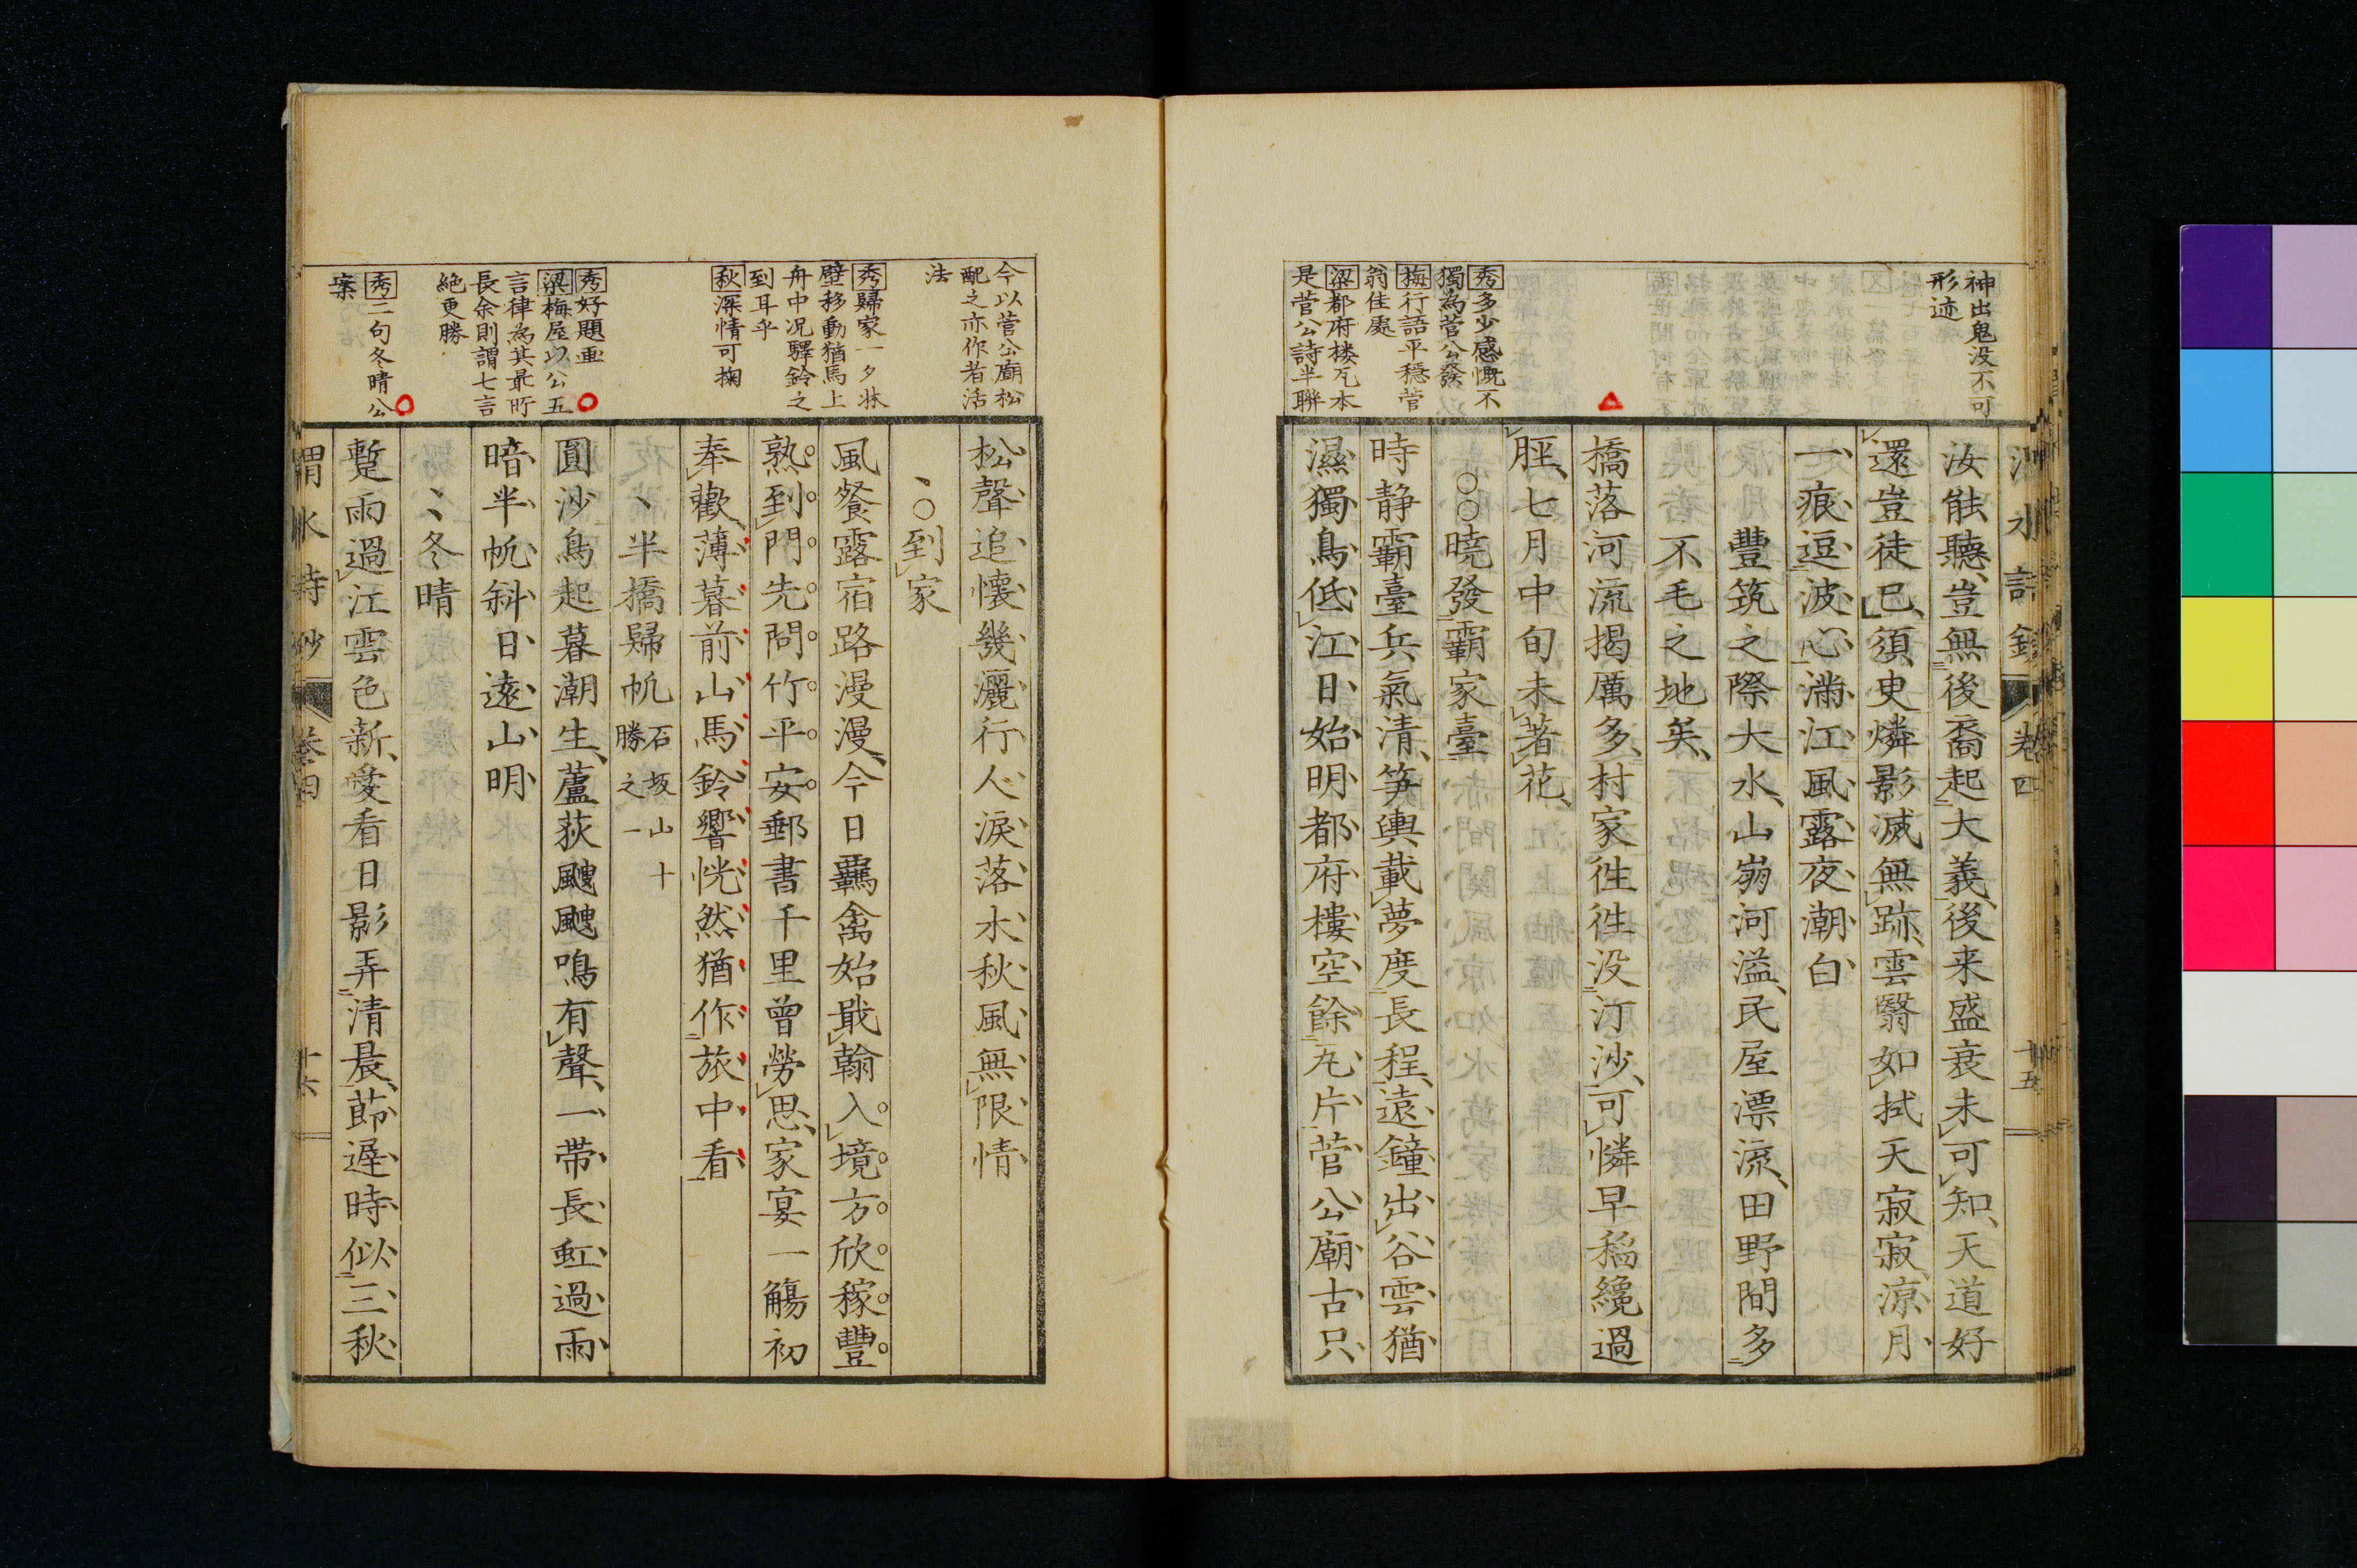 神出鬼没不可
形迹
汝能聽豈無後裔起大義後来盛衰未可知天道好
還豈徒已須臾燐影滅無跡雲翳如拭天寂寂涼月
一痕逗波心満江風露夜潮白
豐筑之際大水山崩河溢民屋漂流田野間多
不毛之地矣
橋落河流揭厲多村家徃徃没汀沙可憐早稻纔過
脛七月中旬未著花
○○暁發霸家臺
時静霸臺兵氣清笋輿載夢度長程遠鐘出谷雲猶
濕獨鳥低江日始明都府樓空餘瓦片菅公廟古只
秀多少感慨不
獨為菅公發
梅行語平穏菅
翁佳處
梁都府楼瓦本
是菅公詩半聯
卷四
十五
今以菅公廟松
配之亦作者活
法
松聲追懐幾灑行人涙落木秋風無限情
、○到家
風餐露宿路漫漫今日羈禽始戢翰入境方欣稼豐
熟到門先問竹平安郵書千里曾勞思家宴一觴初
奉歡薄暮前山馬鈴響恍然猶作旅中看
、半橋歸帆石坂山十
勝之一
圓沙鳥起暮潮生蘆荻颼颼鳴有聲一帯長虹過雨
暗半帆斜日遠山明
、冬晴
蹔雨過江雲色新愛看日影弄清晨莭遅時似三秋
秀歸家一夕牀
壁移動猶馬上
舟中况驛鈴之
到耳乎
秋深情可掬
秀好題画
梁梅屋以公五
言律為其最所
長余則謂七言
絶更勝
秀二句冬晴公
案
卷四
十六